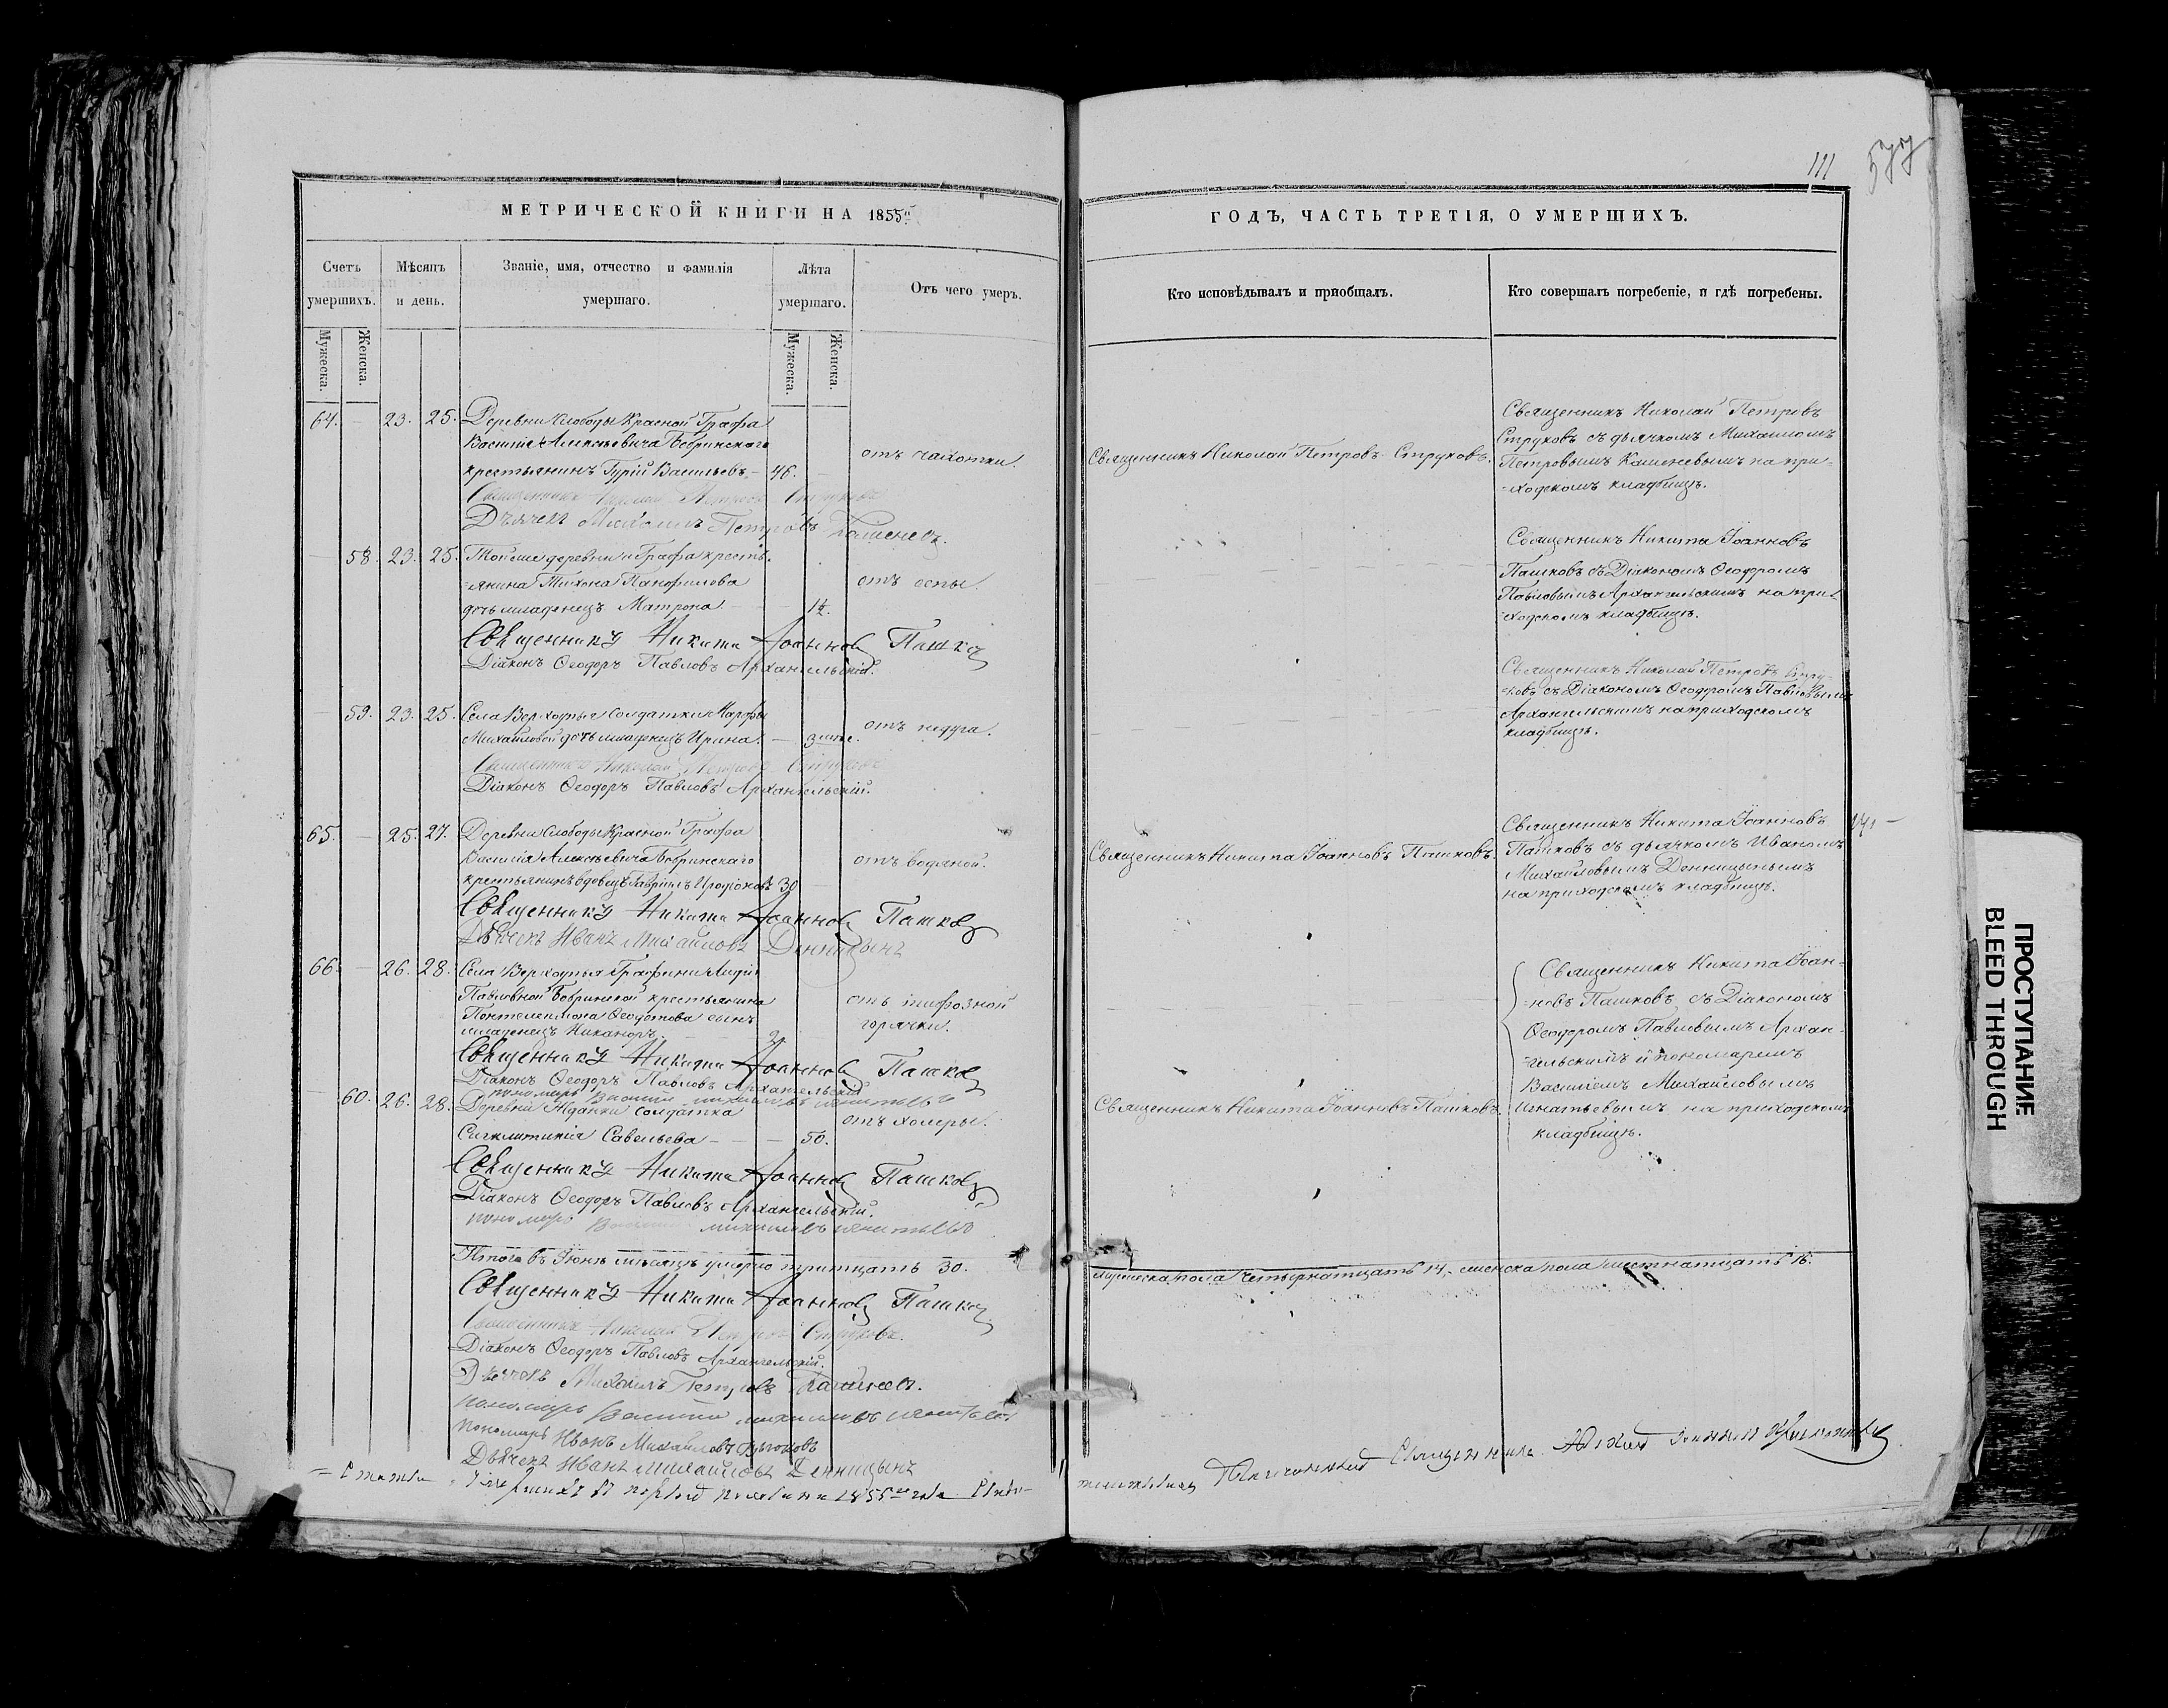 111
577
МЕТРИЧЕСКОЙ КНИГИ НА 1855й
ГОДЪ, ЧАСТЬ ТРЕТІЯ, О УМЕРШИХЪ.
Счетъ умершихъ.
Мѣсяцъ и день.
Званіе, имя, отчество и фамилія умершаго.
Лѣта умершаго.
Отъ чего умеръ.
Кто исповѣдывалъ и пріобщалъ.
Кто совершалъ погребеніе, и гдѣ погребены.
Мужеска.
Женска.
Мужеска.
Женска.
64. — 23. 25. Деревни Слободы Красной Графа
Василія Алексѣевича Бобринскаго
крестьянинъ Гурій Васильевъ — 46.
отъ чахотки.
Священникъ Николай Петровъ Струковъ.
Священникъ Николай Петровъ
Струковъ съ дьячкомъ Михаиломъ
Петровымъ Каменевымъ на при-
=ходскомъ кладбищѣ.
Священникъ Николай Петровъ Струковъ
Дьячекъ Михаилъ Петровъ Каменевъ.
— 58. 23. 25. Той же деревни и Графа кресть-
=янина Тихона Панфилова
дочь младенецъ Матрона — 1½.
отъ оспы.
Священникъ Никита Іоанновъ
Пашковъ съ Діакономъ Ѳеодоромъ
Павловымъ Архангельскимъ на при-
=ходскомъ кладбищѣ.
Священникъ Никита Іоанновъ Пашковъ
Діаконъ Ѳеодоръ Павловъ Архангельскій.
— 59. 23. 25. Села Верхоупья солдатки Марфы
Михайловой дочь младенецъ Ирина. — 3 мѣс.
отъ недуга.
Священникъ Николай Петровъ Стру-
=ковъ съ Діакономъ Ѳеодоромъ Павловымъ
Архангельскимъ на приходскомъ
кладбищѣ.
Священникъ Николай Петровъ Струковъ
Діаконъ Ѳеодоръ Павловъ Архангельскій.
65. — 25. 27. Деревни Слободы Красной Графа
Василія Алексѣевича Бобринскаго
крестьянинъ вдовецъ Гавріилъ Иродіоновъ 30
отъ водяной.
Священникъ Никита Іоанновъ Пашковъ.
Священникъ Никита Іоанновъ
Пашковъ съ дьячкомъ Иваномъ
Михайловымъ Денницынымъ
на приходскомъ кладбищѣ.
Священникъ Никита Іоанновъ Пашковъ
Дьячекъ Иванъ Михайловъ Денницынъ
66. — 26. 28. Села Верхоупья Графини Лидіи
Павловной Бобринской крестьянина
Пантелеимона Ѳеодотова сынъ
младенецъ Никаноръ — 2.
отъ тифозной
горячки.
Священникъ Никита Іоан-
=новъ Пашковъ, съ Діакономъ
Ѳеодоромъ Павловымъ Архан-
=гельскимъ и пономаремъ
Василіемъ Михайловымъ
Игнатьевымъ на приходскомъ
кладбищѣ.
Священникъ Никита Іоанновъ Пашковъ
Діаконъ Ѳеодоръ Павловъ Архангельскій
пономарь Василій Михайловъ Игнатьевъ
— 60. 26. 28. Деревни Жданки солдатка
Сигклитикія Савельева — 50.
отъ холеры.
Священникъ Никита Іоанновъ Пашковъ.
Священникъ Никита Іоанновъ Пашковъ
Діаконъ Ѳеодоръ Павловъ Архангельскій.
пономарь Василій Михайловъ Игнатьевъ
Итого въ Іюнѣ мѣсяцѣ умерло тритцать 30.
мужеска пола четырнатцать 14, женска пола шестнатцать 16.
Священникъ Никита Іоанновъ Пашковъ
Священникъ Николай Петровъ Струковъ.
Діаконъ Ѳеодоръ Павловъ Архангельскій.
Дьячекъ Михаилъ Петровъ Каменевъ.
пономарь Василій Михайловъ Игнатьевъ
пономарь Иванъ Михайловъ
Дьячекъ Иванъ Михайловъ Денницынъ
первой половинѣ 1855го года
Священникъ
ПРОСТУПАНИЕ
BLEED THROUGH